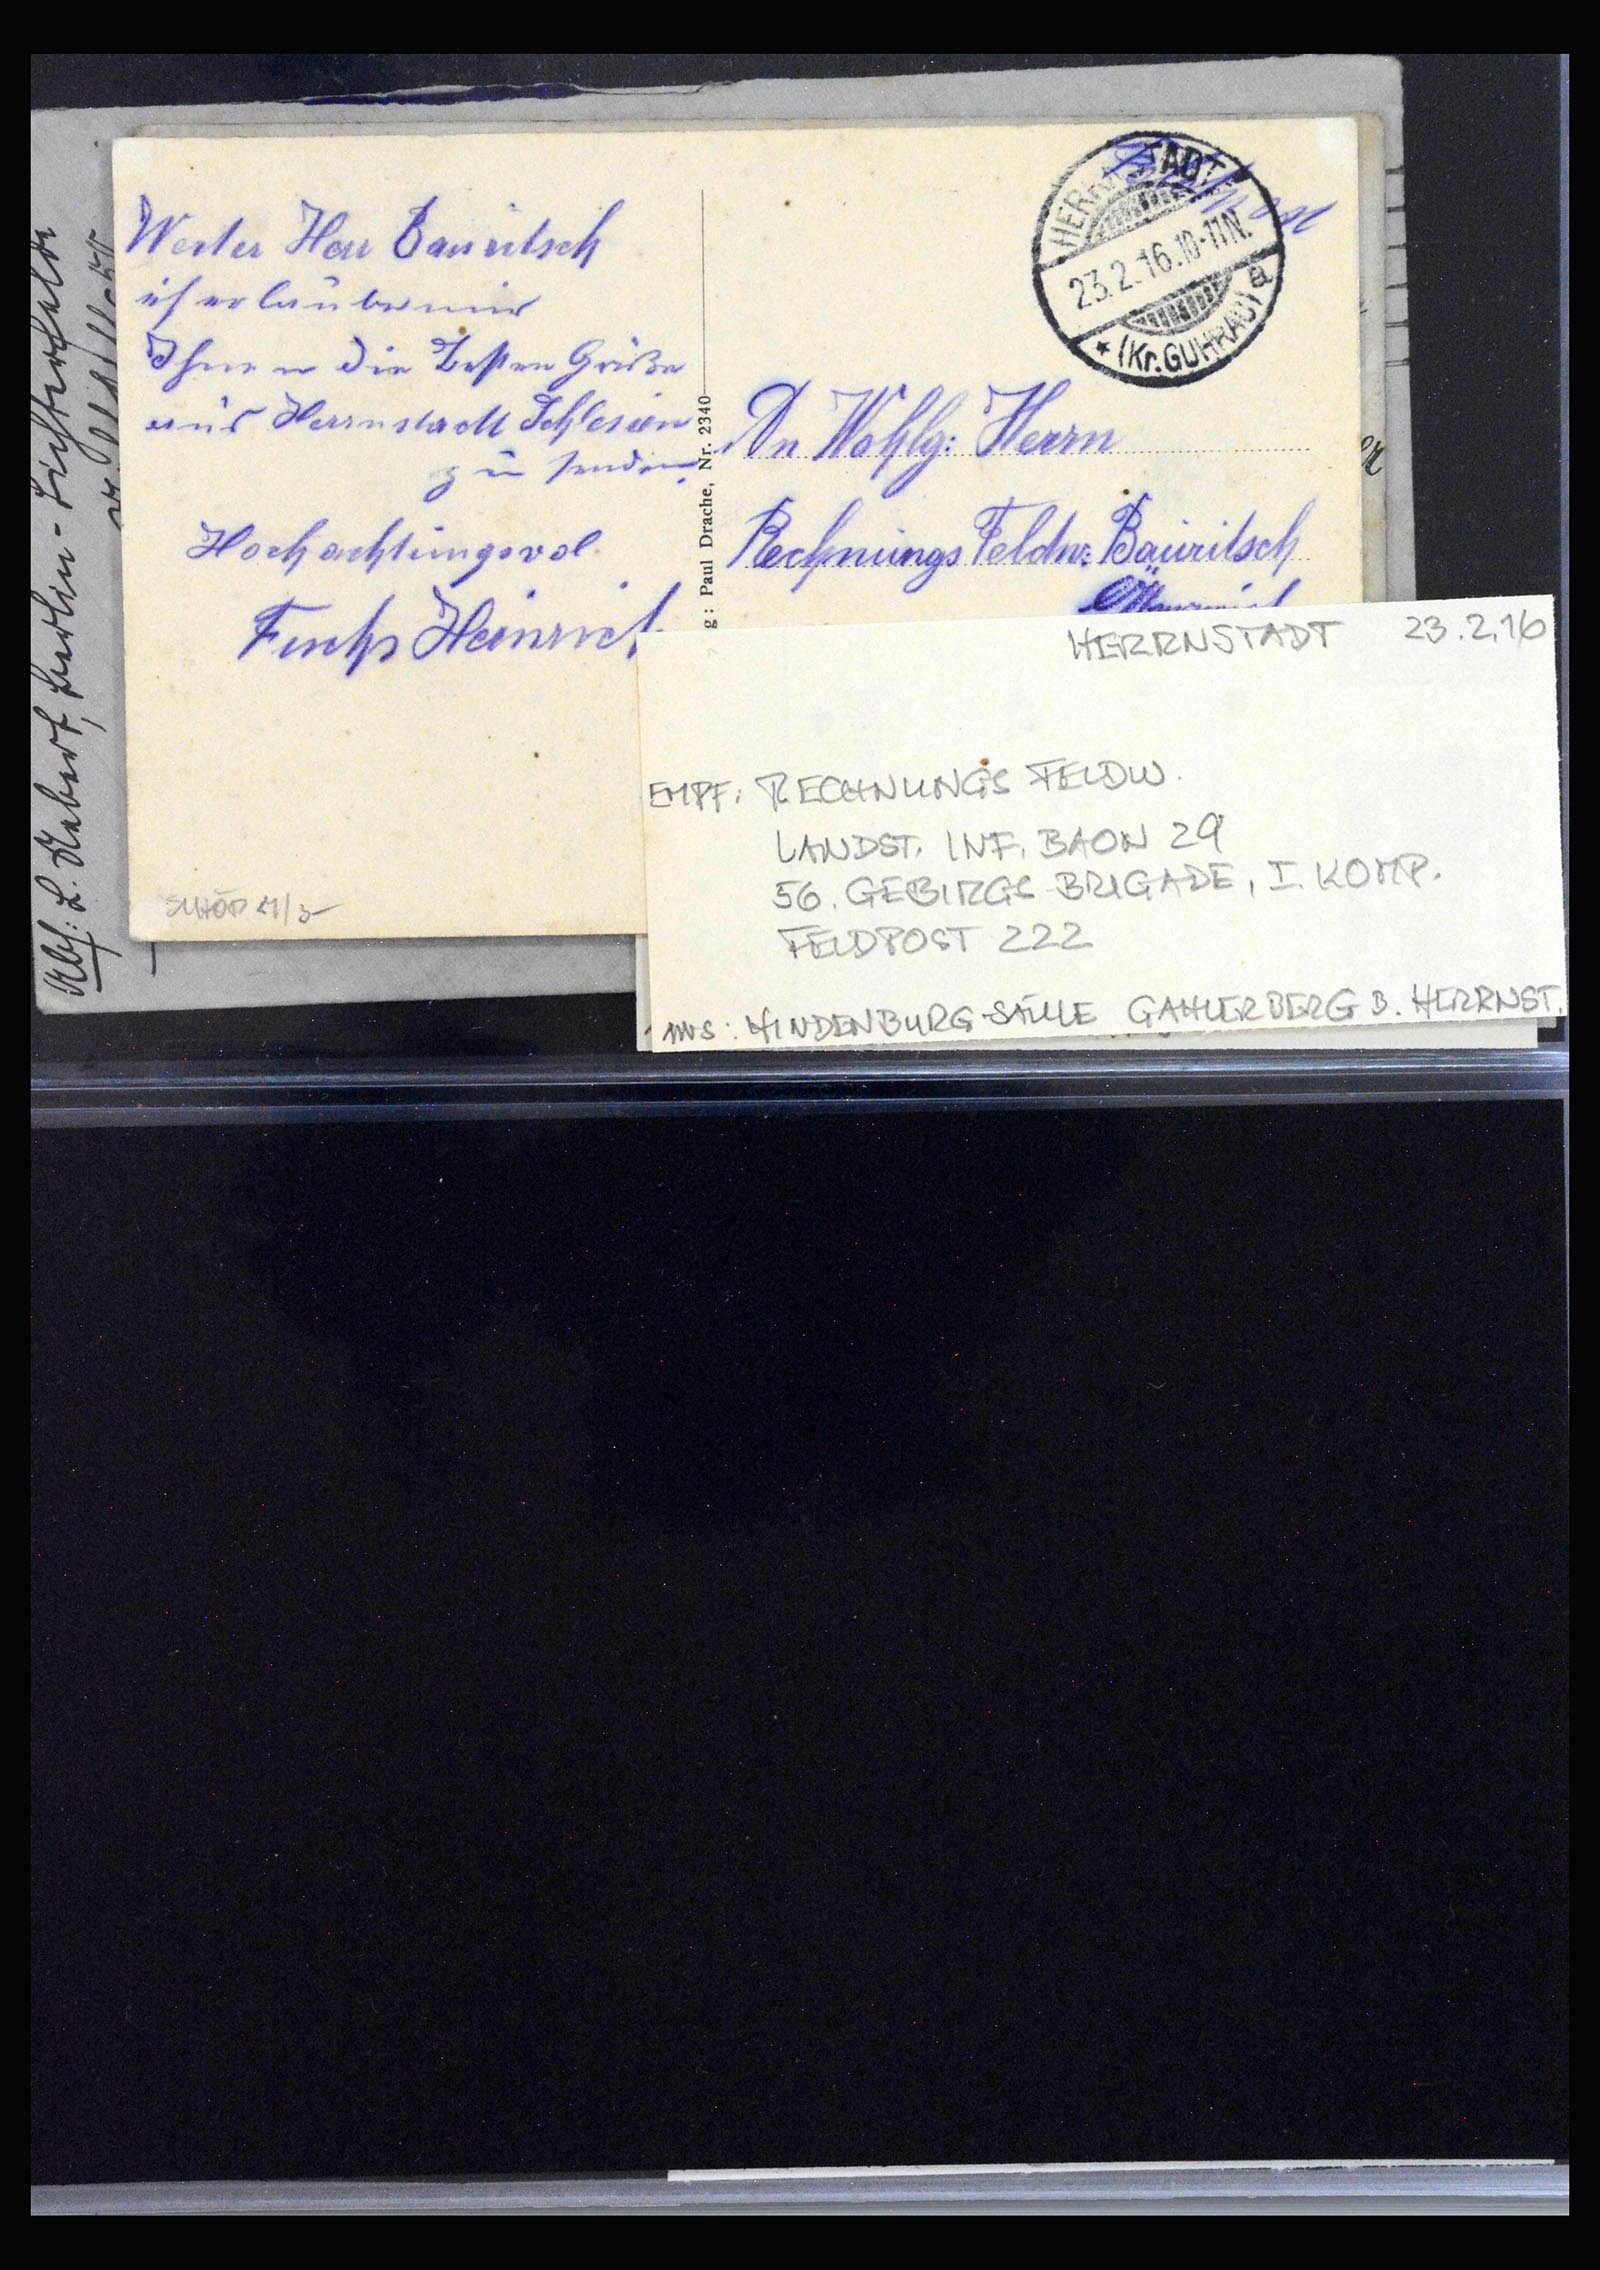 Werter Herr Bauritsch
ich erlaube mir
Ihnen die besten Grüße
aus Herrnstadt Schlesien
zu senden.
Hochachtungsvol
Fuchs Heinrich
g: Paul Drache, Nr. 2340
HERRNSTADT
23.2.16.10-11N.
* (Kr. GUHRAU) a
An Wohlg: Herrn
Rechnungs Feldw: Bauritsch
HERRNSTADT 23.2.16
EMPF: RECHNUNGS FELDW.
LANDST. INF. BAON 29
56. GEBIRGS-BRIGADE, I. KOMP.
FELDPOST 222
HINDENBURG-SÄULE GAHLERBERG B. HERRNST.
Abs: L. Nebert, Berlin-Lichterfelde